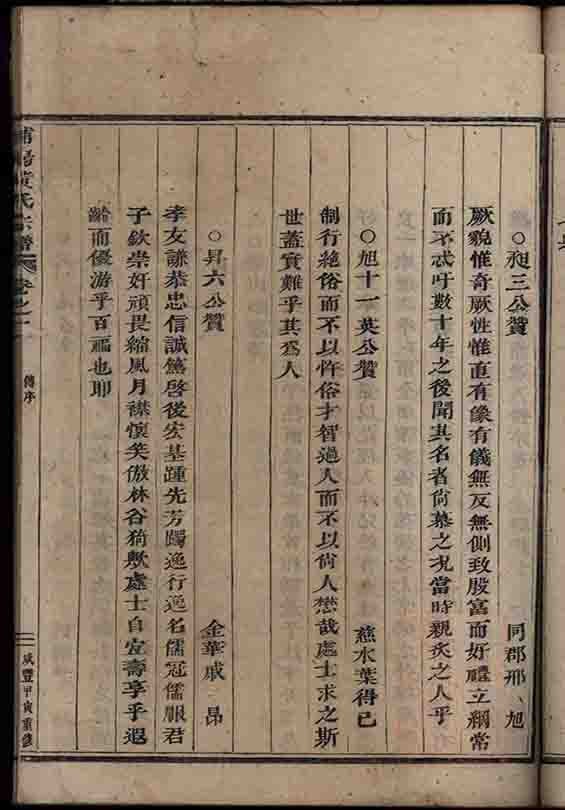 ○昶三公贊　同郡邢、旭
厥貌惟奇厥性惟直有像有儀無反無側致殷富而好禮立綱常
而不忒吁數十年之後聞其名者尙慕之况當時親炙之人乎
○旭十一英公贊　慈水葉得巳
制行絶俗而不以忤俗才智過人而不以尙人懋哉處士求之斯
世蓋實難乎其爲人
○昇六公贊　金華戚　昂
孝友謙恭忠信誠篤啓後宏基踵先芳躅逸行逸名儒冠儒服君
子欽崇奸頑畏縮風月襟懷笑傲林谷猗歟處士自宜壽享乎遐
齡而優游乎百福也耶
氏宗譜卷之
傳序
咸豐甲寅重修